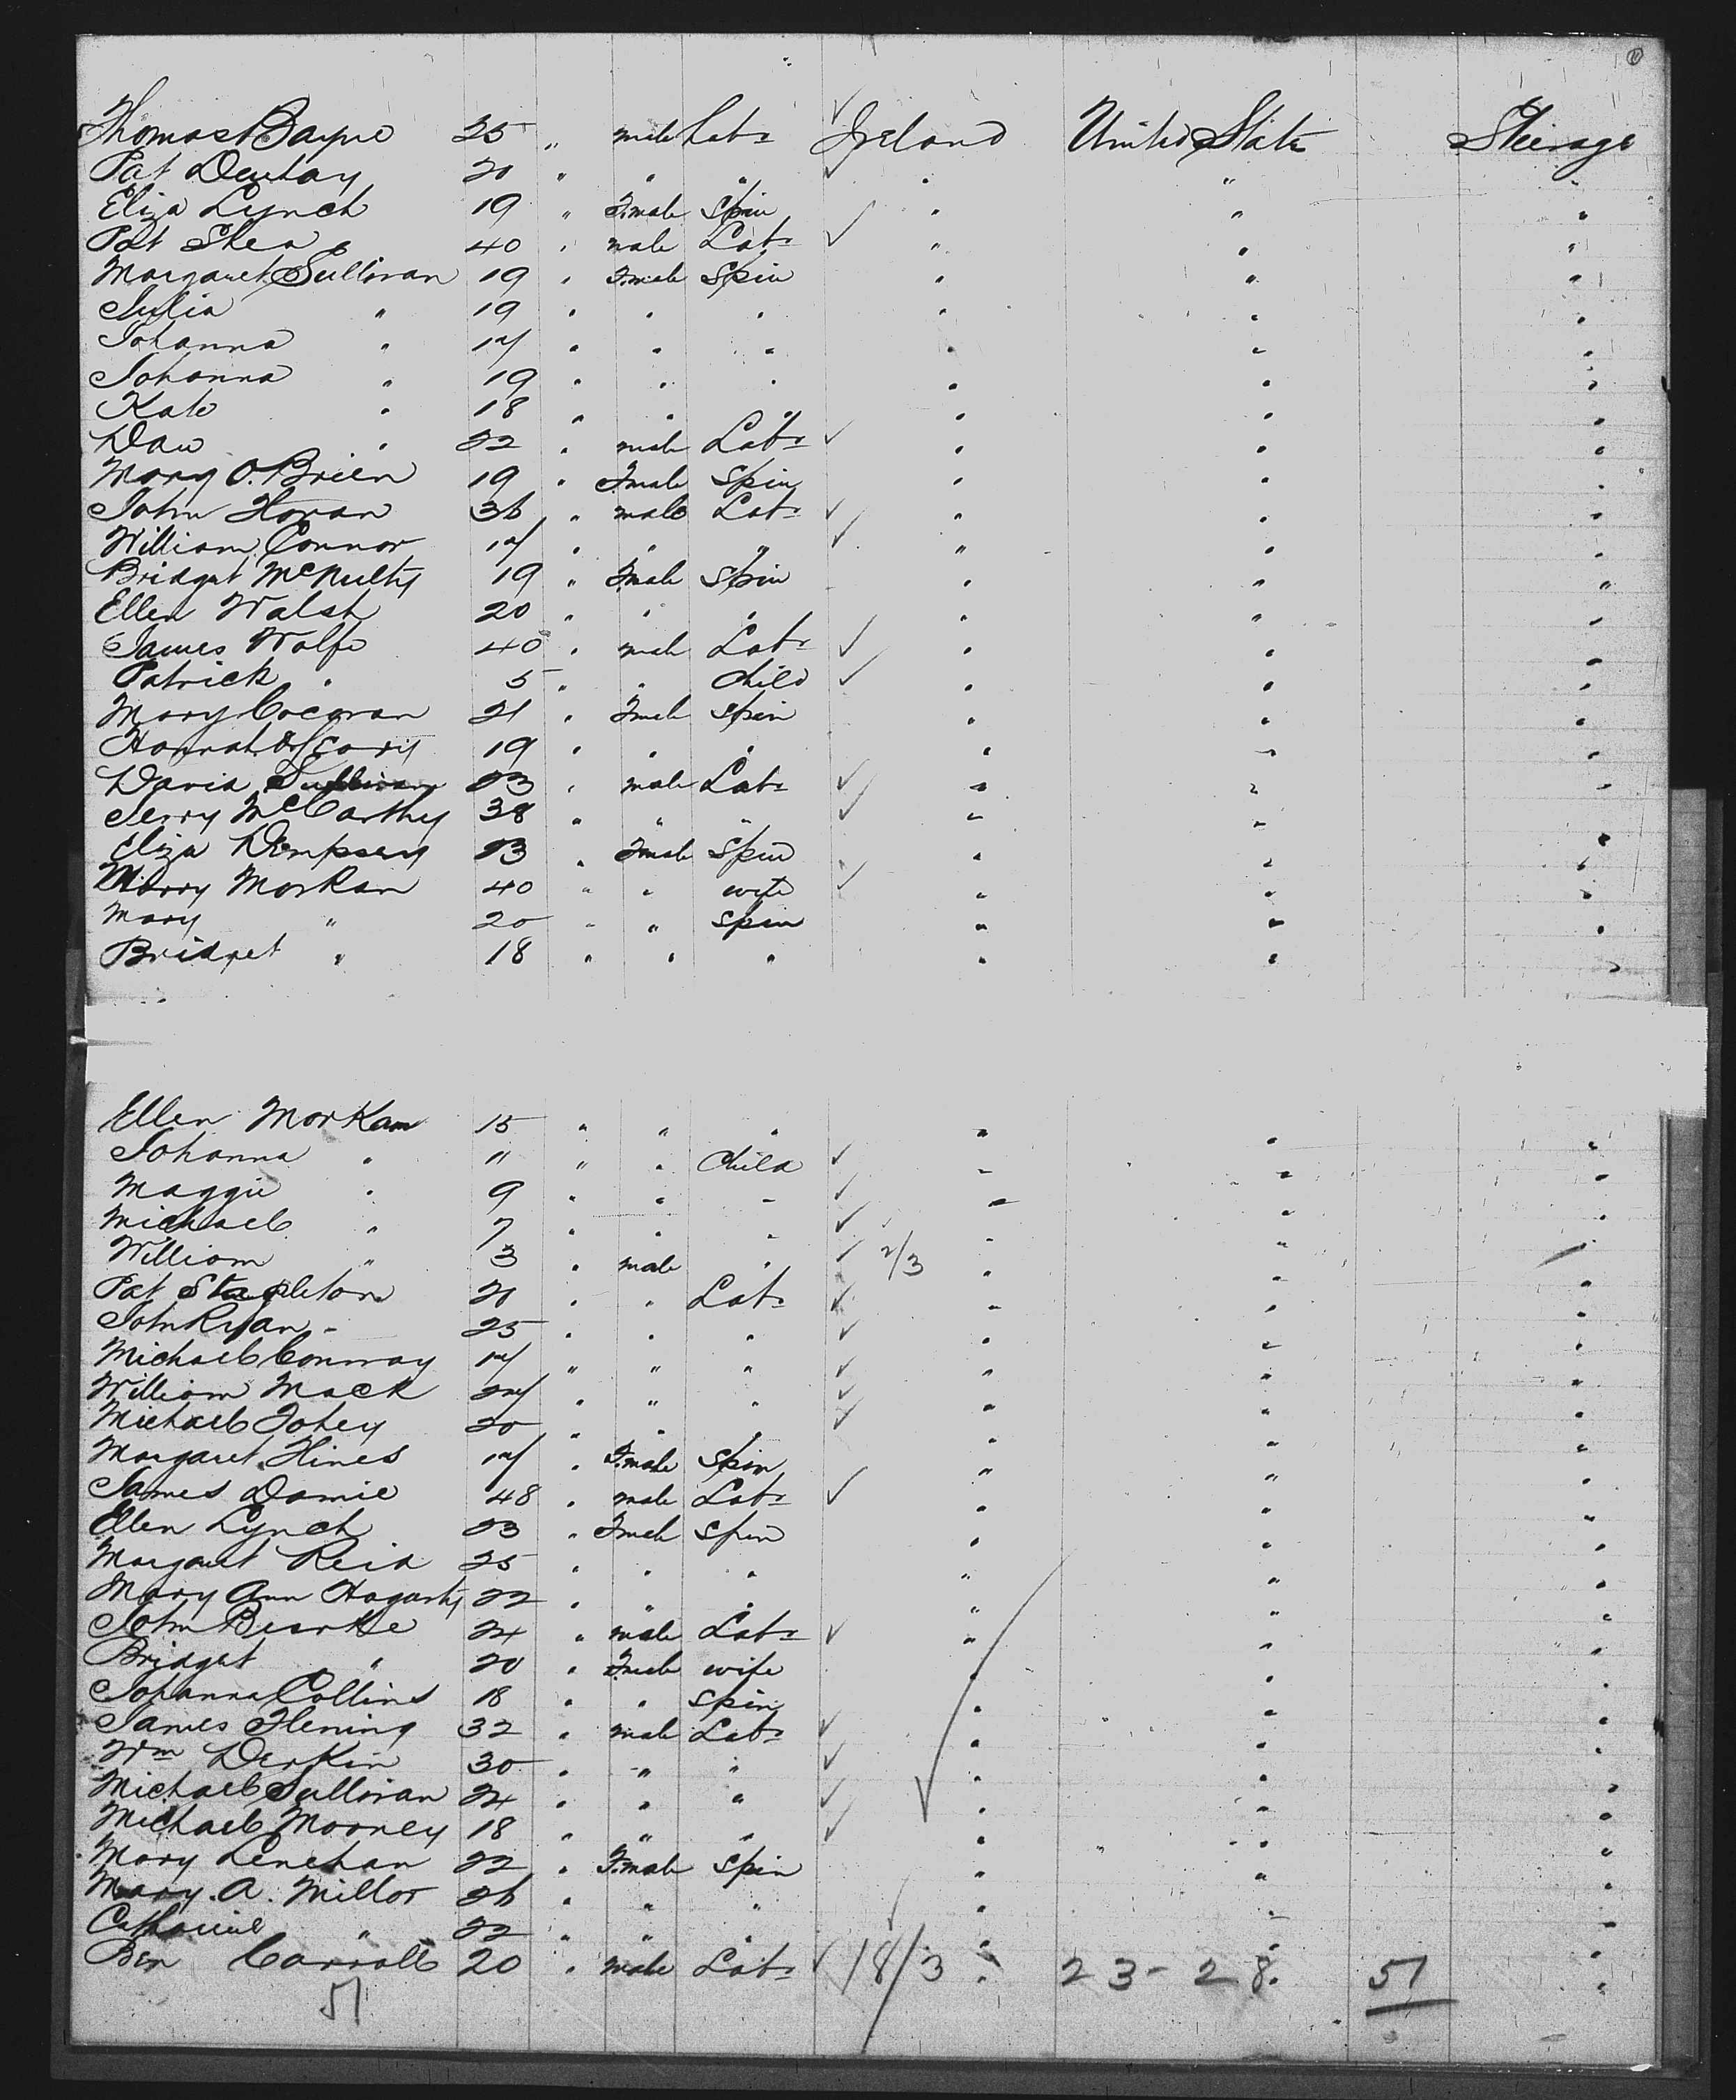 Thomas Bayne 25 " male Labr Ireland United State Steerage
Pat 20 " " " " " "
Eliza Lynch 19 " Female Spin " " "
Pat Shea 40 " male Labr " " "
Margaret Sullivan 19 " Female Spin " " "
Julia " 19 " " " " " "
Johanna " 17 " " " " " "
Johanna " 19 " " " " " "
Kate " 18 " " " " " "
Dan " 22 " male Labr " " "
Mary O.Brien 19 " Female Spin " " "
John Horan 36 " male Labr " " "
William Connor 17 " " " " " "
Bridget McNulty 19 " Female Spin " " "
Ellen Walsh 20 " " " " " "
James Wolfe 40 " male Labr " " "
Patrick " 5 " " Child " " "
Mary Corcoran 21 " Female Spin " " "
Hannah 19 " " " " " "
David Sullivan 23 " male Labr " " "
Jerry McCarthy 38 " " " " " "
Eliza Dempsey 23 " Female Spin " " "
Morkan 40 " " wife " " "
Mary " 20 " " Spin " " "
Bridget " 18 " " " " " "
Ellen Morkan 15 " " " " " "
Johanna " 11 " " Child " " "
Maggie " 9 " " " " " "
Michael " 7 " " " " " "
William " 3 " male " 2/3 " " "
Pat Stapleton 21 " " Labr " " "
John Ryan 25 " " " " " "
Michael Conway 17 " " " " " "
William Mack 27 " " " " " "
Michael Fohey 20 " " " " " "
Margaret Hines 17 " Female Spin " " "
James Damie 48 " male Labr " " "
Ellen Lynch 23 " Female Spin " " "
Margaret Reid 25 " " " " " "
Mary Ann Hogarty 22 " " " " " "
John 24 " male Labr " " "
Bridget " 20 " Female wife " " "
Johanna Collins 18 " " Spin " " "
James Fleming 32 " male Labr " " "
Wm Derkin 30 " " " " " "
Michael Sullivan 24 " " " " " "
Michael Mooney 18 " " " " " "
Mary Lenehan 22 " Female Spin " " "
Mary. A. Millor 26 " " " " " "
Catharine " 22 " " " " " "
Ben Carroll 20 " male Labr 18/3 " 23-28. 51 "
51